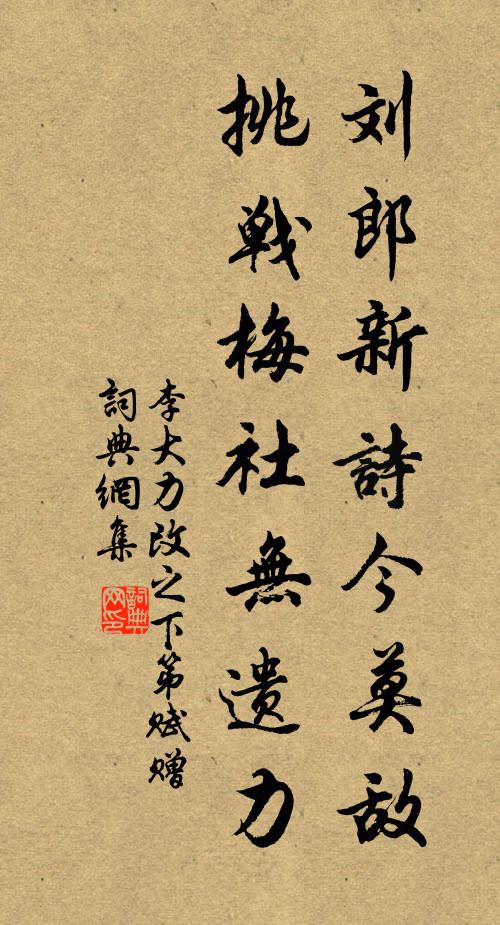 刘郎新詩今莫敌
挑戦梅社無遗力
李大力改之下第赋赠
詞典網集
詞典网印